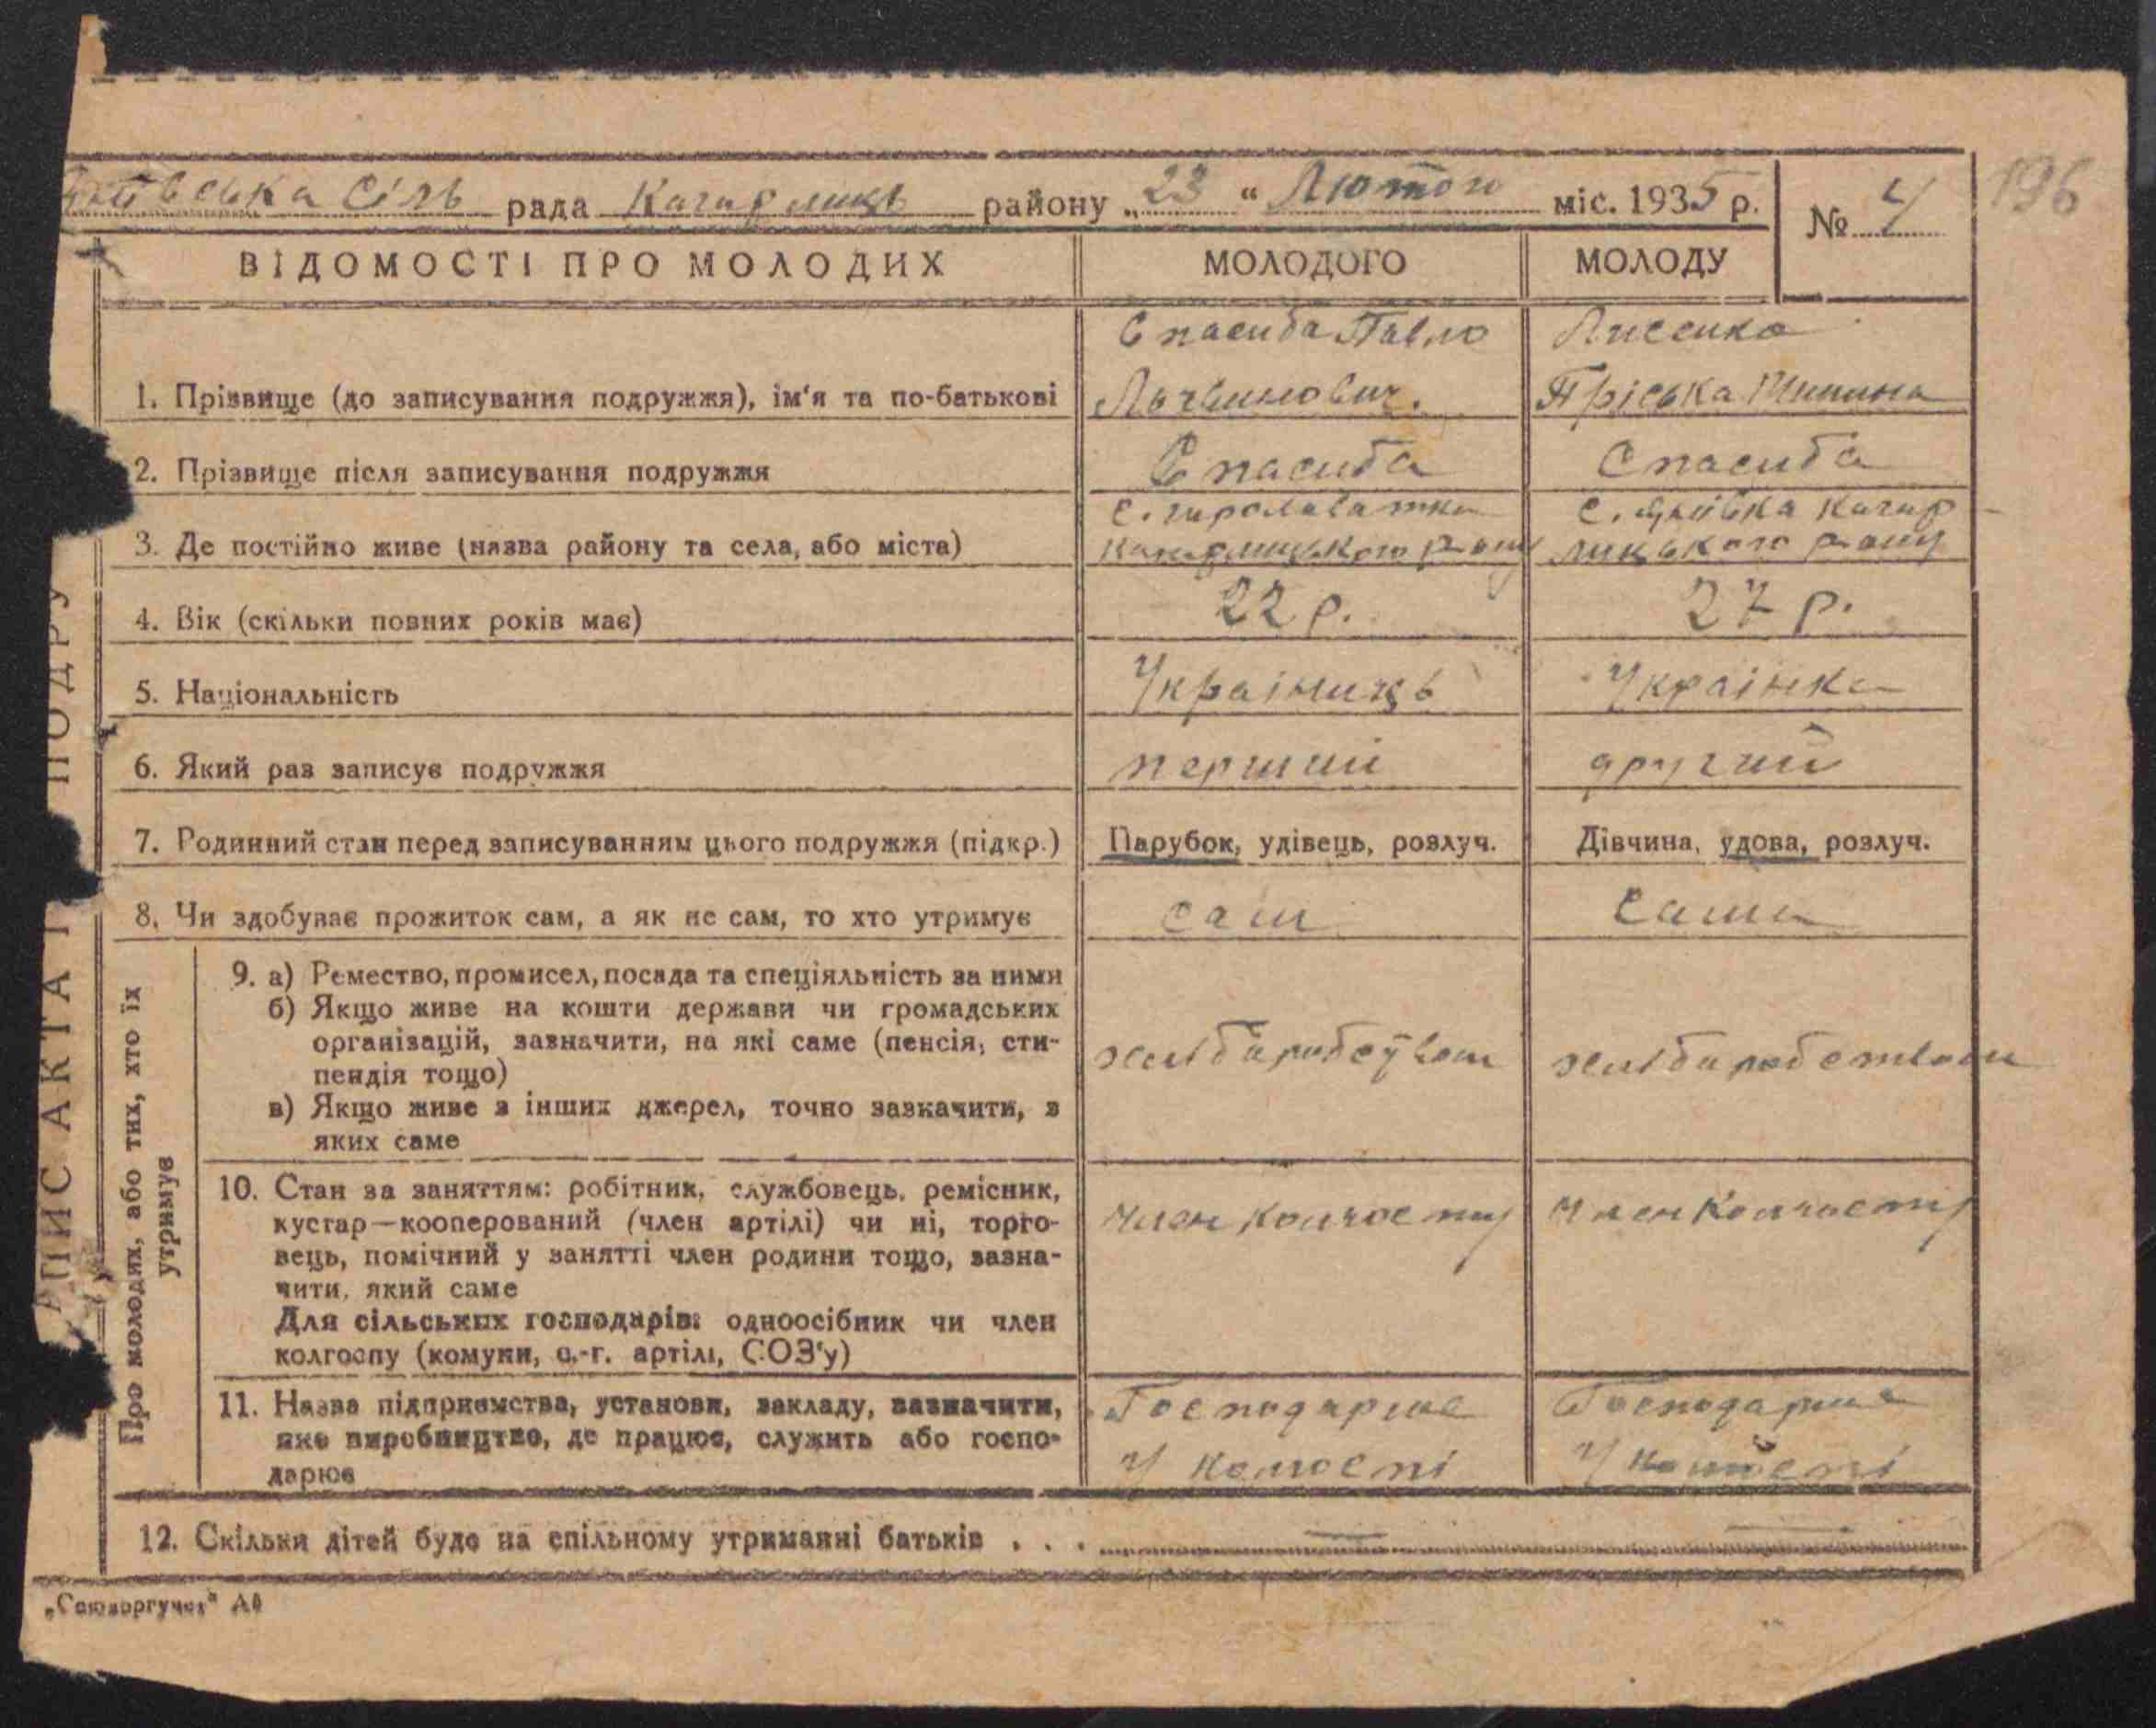 сіль рада Кагарлицк району „23“ Лютого міс. 1935 р. № 4 196
ВІДОМОСТІ ПРО МОЛОДИХ МОЛОДОГО МОЛОДУ
Спасиба Павло Лисенко
1. Прізвище (до записування подружжя), ім'я та по-батькові Пріська
2. Прізвище після записування подружжя Спасиба Спасиба
с. с. Кагар
3. Де постійно живе (назва району та села, або міста) Кагарлицького р-ону лицького р-ону
4. Вік (скільки повних років має) 22 р. 27 р.
5. Національність Україниць Українка
6. Який раз записує подружжя перший другий
7. Родинний стан перед записуванням цього подружжя (підкр.) Парубок, удівець, розлуч. Дівчина, удова, розлуч.
8. Чи здобуває прожиток сам, а як не сам, то хто утримує сам сама
АПИС АКТА П ПОДРУ
Про молодих, або тих, хто їх
утримує
9. а) Ремество, промисел, посада та спеціяльність за ними
б) Якщо живе на кошти держави чи громадських
організацій, зазначити, на які саме (пенсія, сти-
пендія тощо)
в) Якщо живе з інших джерел, точно зазначити, з
яких саме
10. Стан за заняттям: робітник, службовець, ремісник,
кустар—кооперований (член артілі) чи ні, торго- член колгоспу член колгоспу
вець, помічний у занятті член родини тощо, зазна-
чити, який саме
Для сільських господарів: одноосібник чи член
колгоспу (комуни, с.-г. артілі, СОЗ'у)
11. Назва підприємства, установи, закладу, зазначити,
яке виробництво, де працює, служить або госпо-
дарює у колгоспі у колгоспі
12. Скільки дітей буде на спільному утриманні батьків . . . — —
„Союзоргучет“